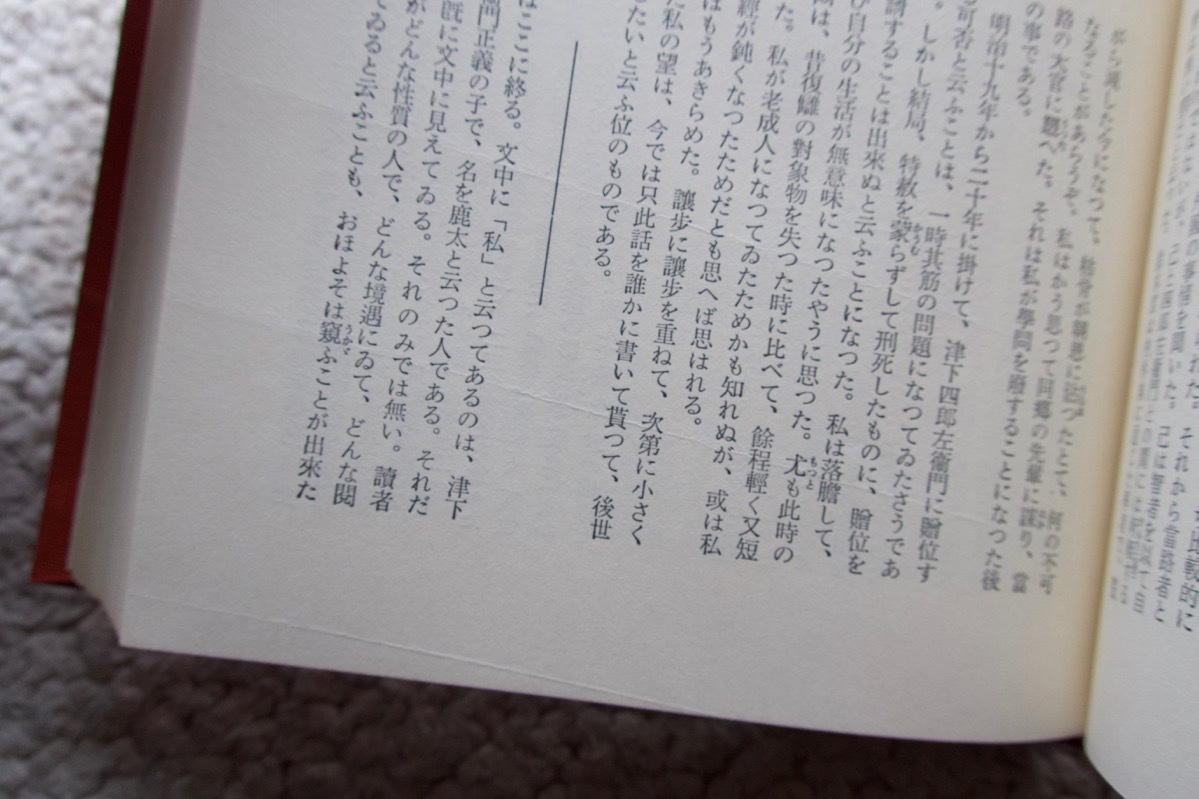 それから當路者と
なることがあらうぞ。私はかう思つて同郷の先輩に謀り、當
路の大官に愬へた。それは私が學問を廢することになつた後
の事である。
明治十九年から二十年に掛けて、津下四郎左衞門に贈位す
る可否と云ふことは、一時其筋の問題になつてゐたさうであ
。しかし結局、特赦を蒙らずして刑死したものに、贈位を
請することは出來ぬと云ふことになつた。私は落膽して、
び自分の生活が無意味になつたやうに思つた。尤も此時の
は、昔復讎の對象物を失つた時に比べて、餘程輕く又短
た。私が老成人になつてゐたためかも知れぬが、或は私
經が鈍くなつたためだとも思へば思はれる。
はもうあきらめた。讓步に讓步を重ねて、次第に小さく
た私の望は、今では只此話を誰かに書いて貰つて、後世
したいと云ふ位のものである。
はここに終る。文中に「私」と云つてあるのは、津下
衞門正義の子で、名を鹿太と云つた人である。それだ
既に文中に見えてゐる。それのみでは無い。讀者
がどんな性質の人で、どんな境遇にゐて、どんな閱
てゐると云ふことも、おほよそは窺ふことが出來た